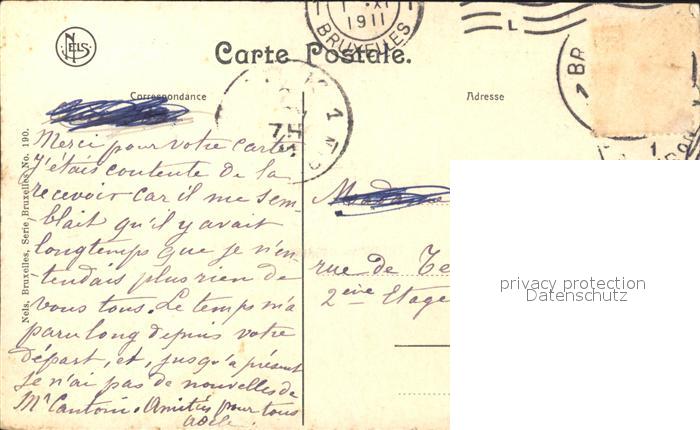 NELS
Carte Postale.
Correspondance
Adresse
1911
BRUXELLES
Merci pour votre carte
J'étais contente de la
recevoir car il me sem-
blait qu'il y avait
longtemps que je n'en-
tendais plus rien de
vous tous. Le temps m'a
paru long depuis votre
départ, et, jusqu'à présent
je n'ai pas de nouvelles de
Mr Cantoni. Amitiés pour tous
Adèle.
Madame
rue de Te
2ème Etage
Nels, Bruxelles, Serie Bruxelles No. 190.
privacy protection
Datenschutz